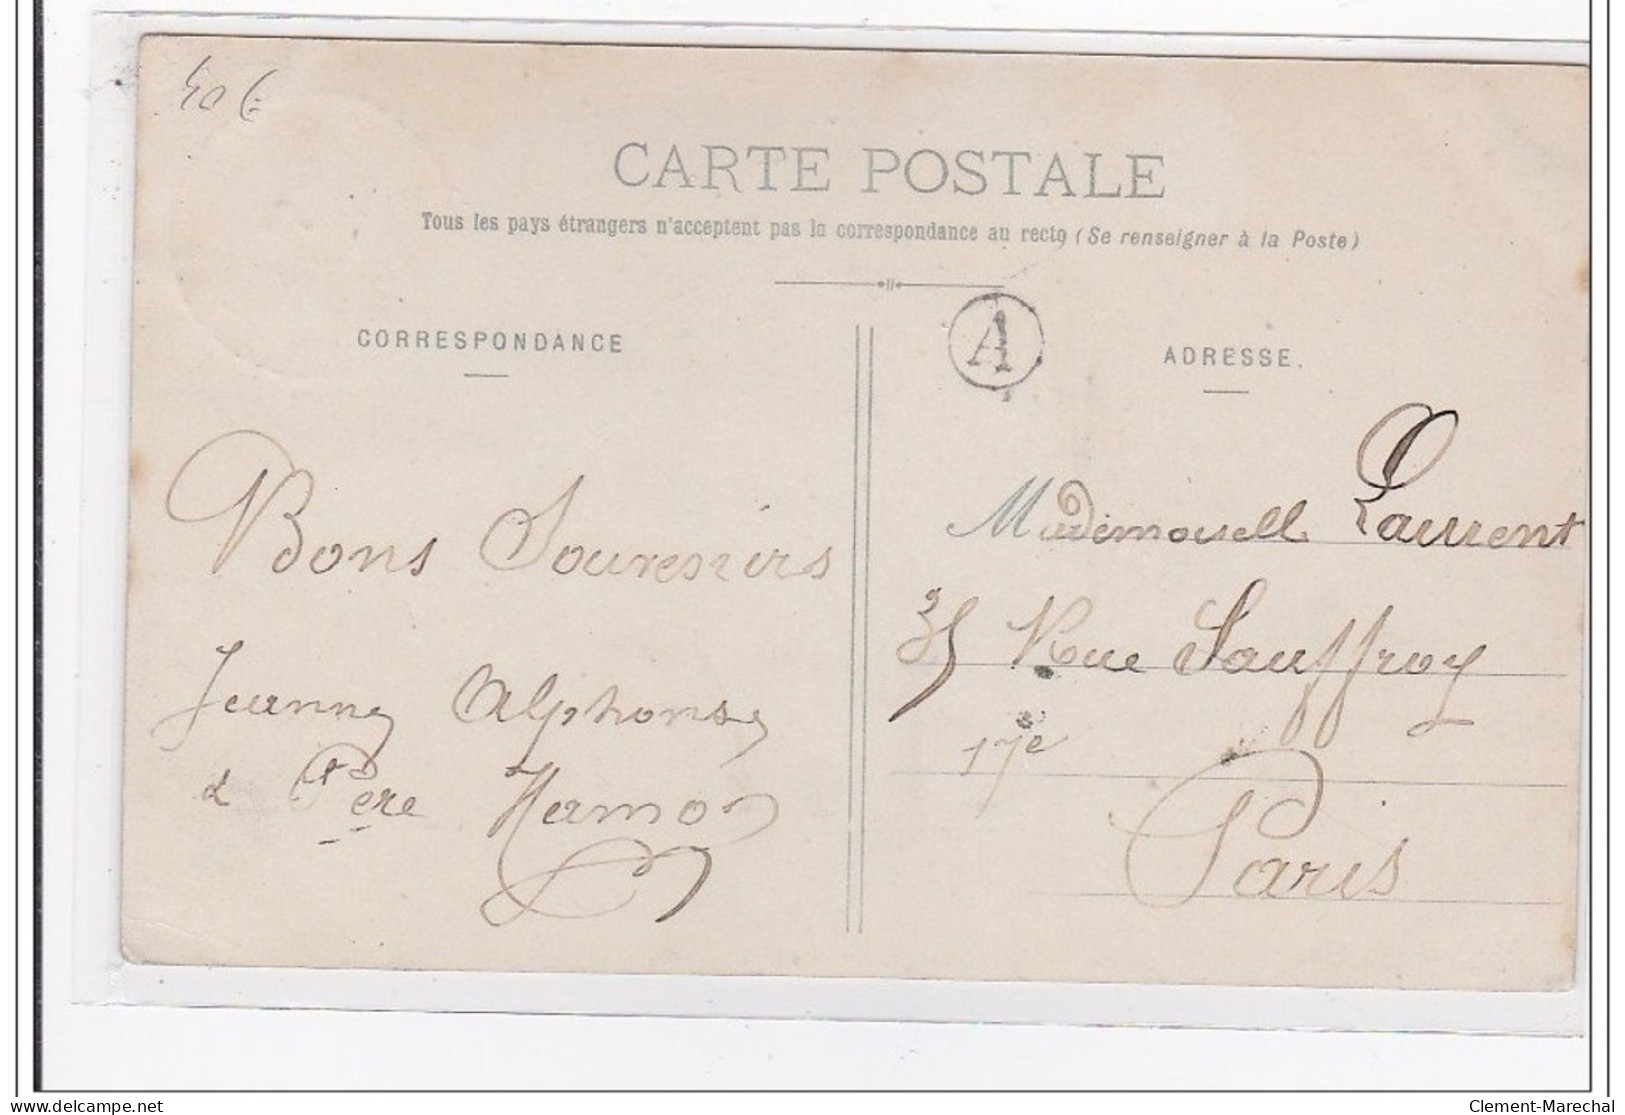 CARTE POSTALE
Tous les pays étrangers n'acceptent pas la correspondance au recto (Se renseigner à la Poste)
CORRESPONDANCE
Bons Souvenirs
Jeanne Alphonse
& Père Hamon
A
ADRESSE.
Mademoiselle Laurent
35 Rue Sauffroy
17e
Paris
delcampe.net
Clement-Marechal